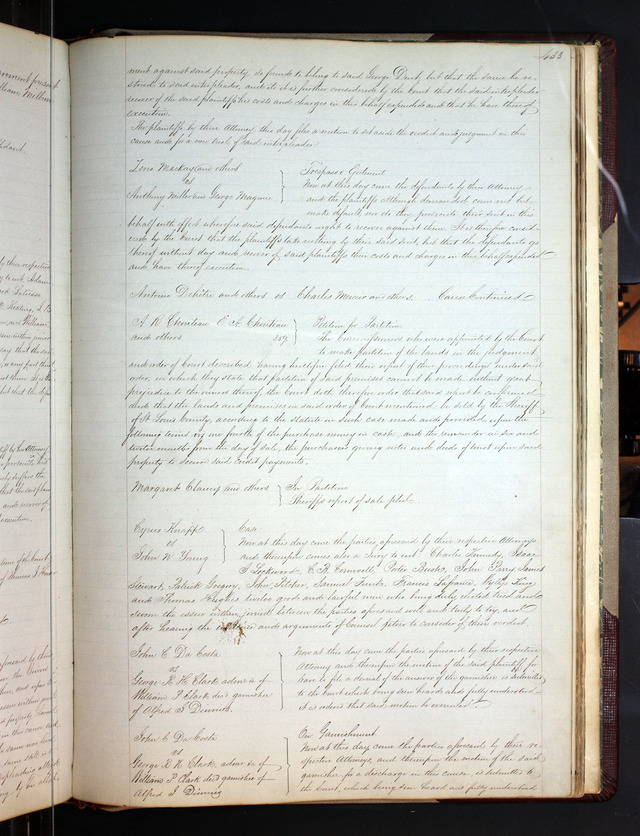 433
ment against said property, so found to belong to said George Dent, but that the same be re-
stored to said interpleader, and it is further considered by the Court that the said interpleader
recover of the said plaintiff his costs and charges in this behalf expended and that he have thereof
execution.
The plaintiffs by their Attorney this day file a motion to set aside the verdict and judgment in this
cause and for a new trial of said interpleader
Zeno Mackay and others
vs
Anthony Miller and George Maguire
Trespass & Ejectment
Now at this day come the defendants by their Attorney
and the plaintiffs although demanded come not but
make default, nor do they prosecute their suit in this
behalf with effect wherefore said defendants ought to recover against them. It is therefore consid-
ered by the Court that the plaintiffs take nothing by their said suit, but that the defendants go
thereof without day and recover of said plaintiffs their costs and charges in this behalf expended
and have thereof execution.
Antoine and others vs Charles Mercier and others. Cause Continued
A R Chouteau E A Chouteau
and others
Petition for Partition
The Commissioners who were appointed by the Court
to make partition of the lands in the judgment
and order of Court described, having heretofore filed their report of their proceedings under said
order, in which they state that partition of said premises cannot be made without great
prejudice to the owners thereof, the Court doth therefore order that said report be confirmed
and that the lands and premises in said order of Court mentioned, be sold by the Sheriff
of St Louis County, according to the statute in such case made and provided, upon the
following terms viz one fourth of the purchase money in cash and the remainder in six and
twelve months from the day of sale, the purchasers giving notes and deeds of trust upon said
property to secure said credit payments.
Margaret and others
In Partition
Sheriffs report of sale filed
Cyrus Knapp
vs
John W Young
Case
Now at this day come the parties aforesaid by their respective Attorneys
and thereupon comes also a Jury to wit Charles Kennedy, Isaac
I Lockwood, Cornwell, Peter Brooks, John Parry, James
Stewart, Patrick Gregory, John Pitcher, Samuel Francis
and Thomas Hughes twelve good and lawful men who being duly elected tried and
sworn the issue within joined between the parties aforesaid well and truly to try, and
after hearing the evidence and arguments of Counsel retire to consider of their verdict.
John C Da Costa
vs
George K H Clark admr &c of
William P Clark decd garnishee
of Alfred J
Now at this day come the parties aforesaid by their respective
Attorney and thereupon the motion of the said plaintiff for
leave to file a denial of the answer of the garnishee is submitted
to the Court, which being seen heard and fully understood
it is ordered that said motion be overruled
John C Da Costa
vs
George K H Clark admr &c of
William P Clark decd garnishee of
Alfred J
On Garnishment
Now at this day come the parties aforesaid by their re-
spective Attorneys, and thereupon the motion of the said
garnishee for a discharge in this cause, is submitted to
the Court, which being seen heard and fully understood